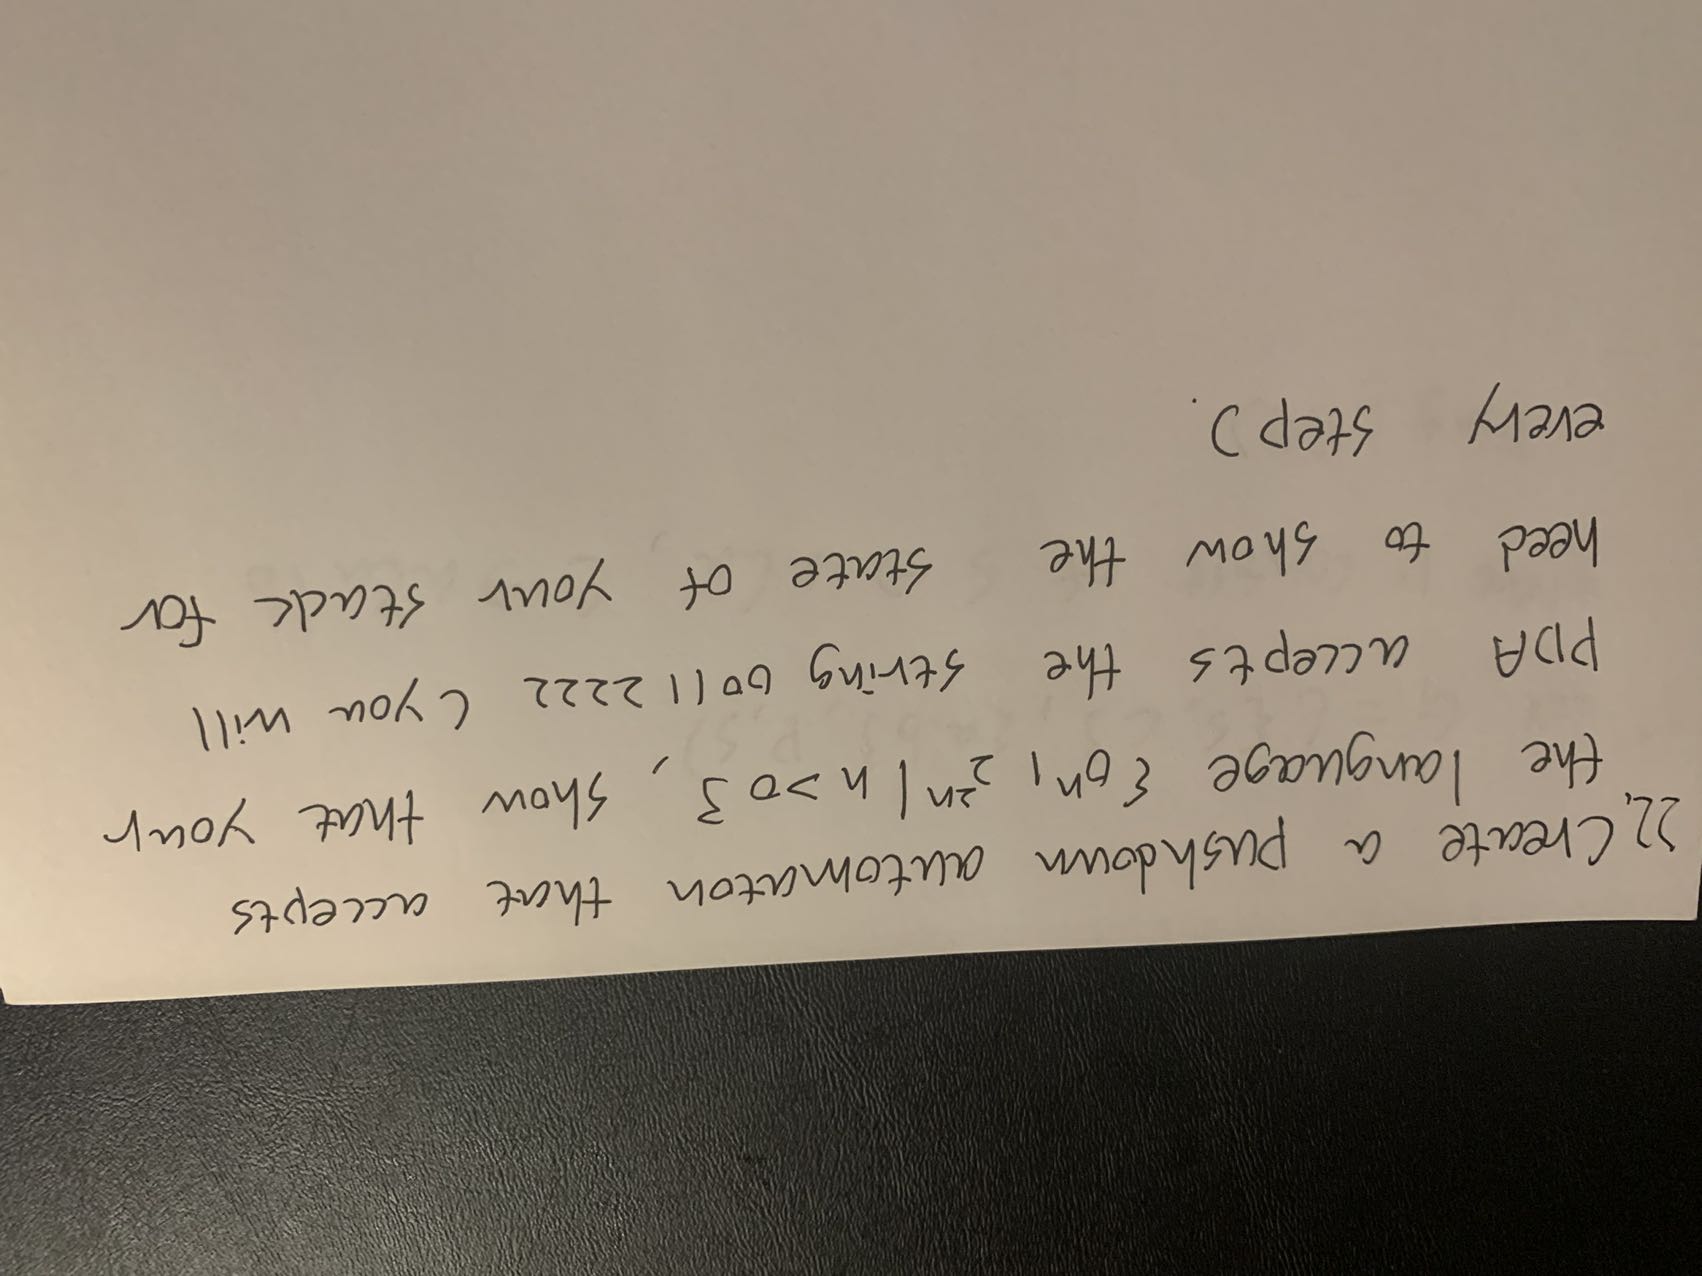 22. Create a pushdown automaton that accepts
the language {0n1 2^2n | n>0}, show that your
PDA accepts the string 0011 2222 (you will
need to show the state of your stack for
every step).